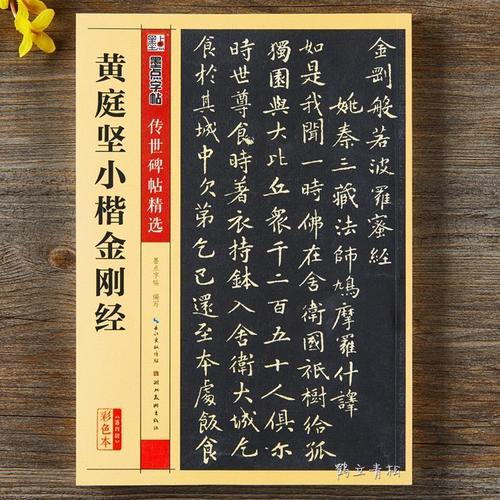 墨点字帖
传世碑帖精选
黄庭坚小楷金刚经
墨点字帖 编写
长江出版传媒
湖北美术出版社
彩色本
(第四辑)
金剛般若波羅蜜經
姚秦三藏法師鳩摩羅什譯
如是我聞一時佛在舍衛國祇樹給孤
獨園與大比丘衆千二百五十人俱尔
時世尊食時著衣持鉢入舍衛大城乞
食於其城中次弟乞已還至本處飯食
鶴立青松